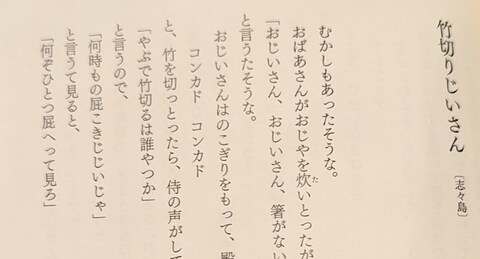 竹切りじいさん
〔志々島〕
むかしもあったそうな。
おばあさんがおじやを炊いとったが
た
「おじいさん、おじいさん、箸がない
と言うたそうな。
おじいさんはのこぎりをもって、殿
コンカド　コンカド
と、竹を切っとったら、侍の声がして
「やぶで竹切るは誰やつか」
と言うので、
「何時もの屁こきじじいじゃ」
と言うて見ると、
「何ぞひとつ屁へって見ろ」